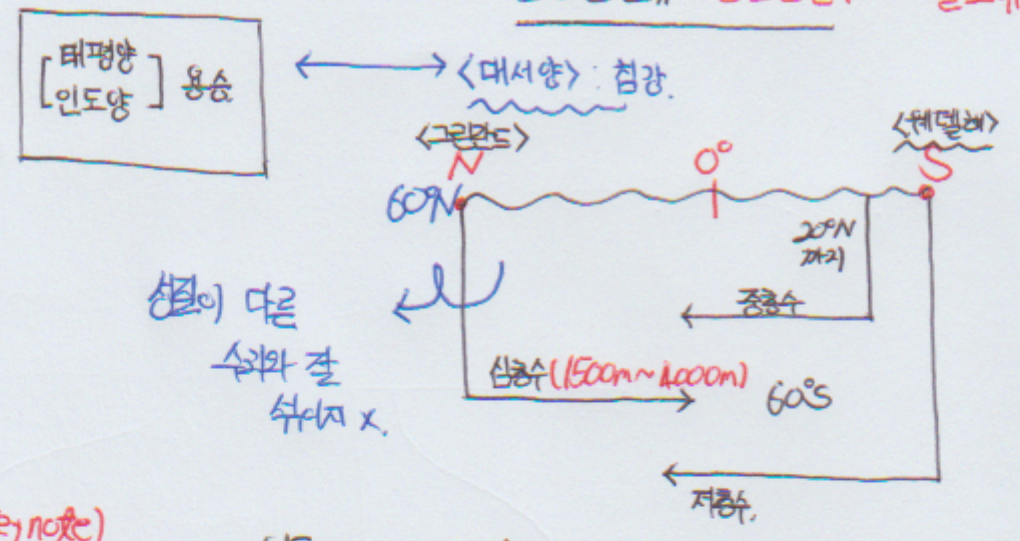 [ 태평양
인도양 ] 용승
<대서양> : 침강.
<그린란드>
N
0°
<웨델해>
S
60°N
20°N
까지
성질이 다른
수괴와 잘
섞이지 x.
중층수
심층수(1500m~4000m)
60°S
저층수.